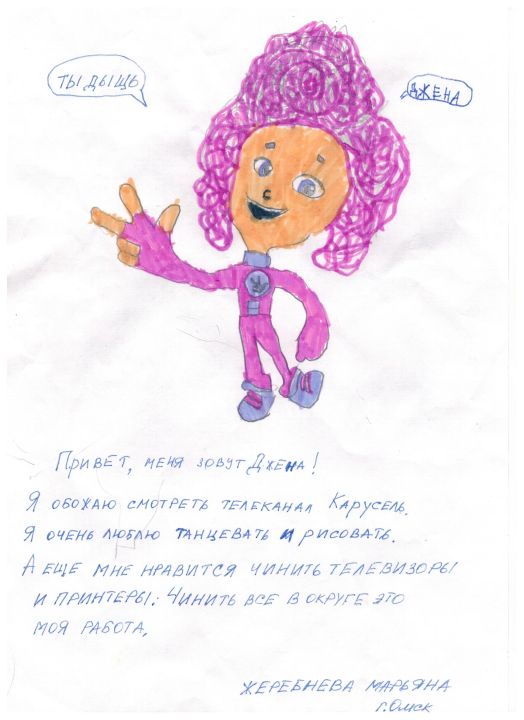 ТЫДЫЩЬ
ДЖЕНА
Привет, меня зовут Джена!
Я обожаю смотреть телеканал Карусель.
Я очень люблю танцевать и рисовать.
А еще мне нравится чинить телевизоры
и принтеры: Чинить все в округе это
моя работа,
ЖЕРЕБНЕВА МАРЬЯНА
г.Омск